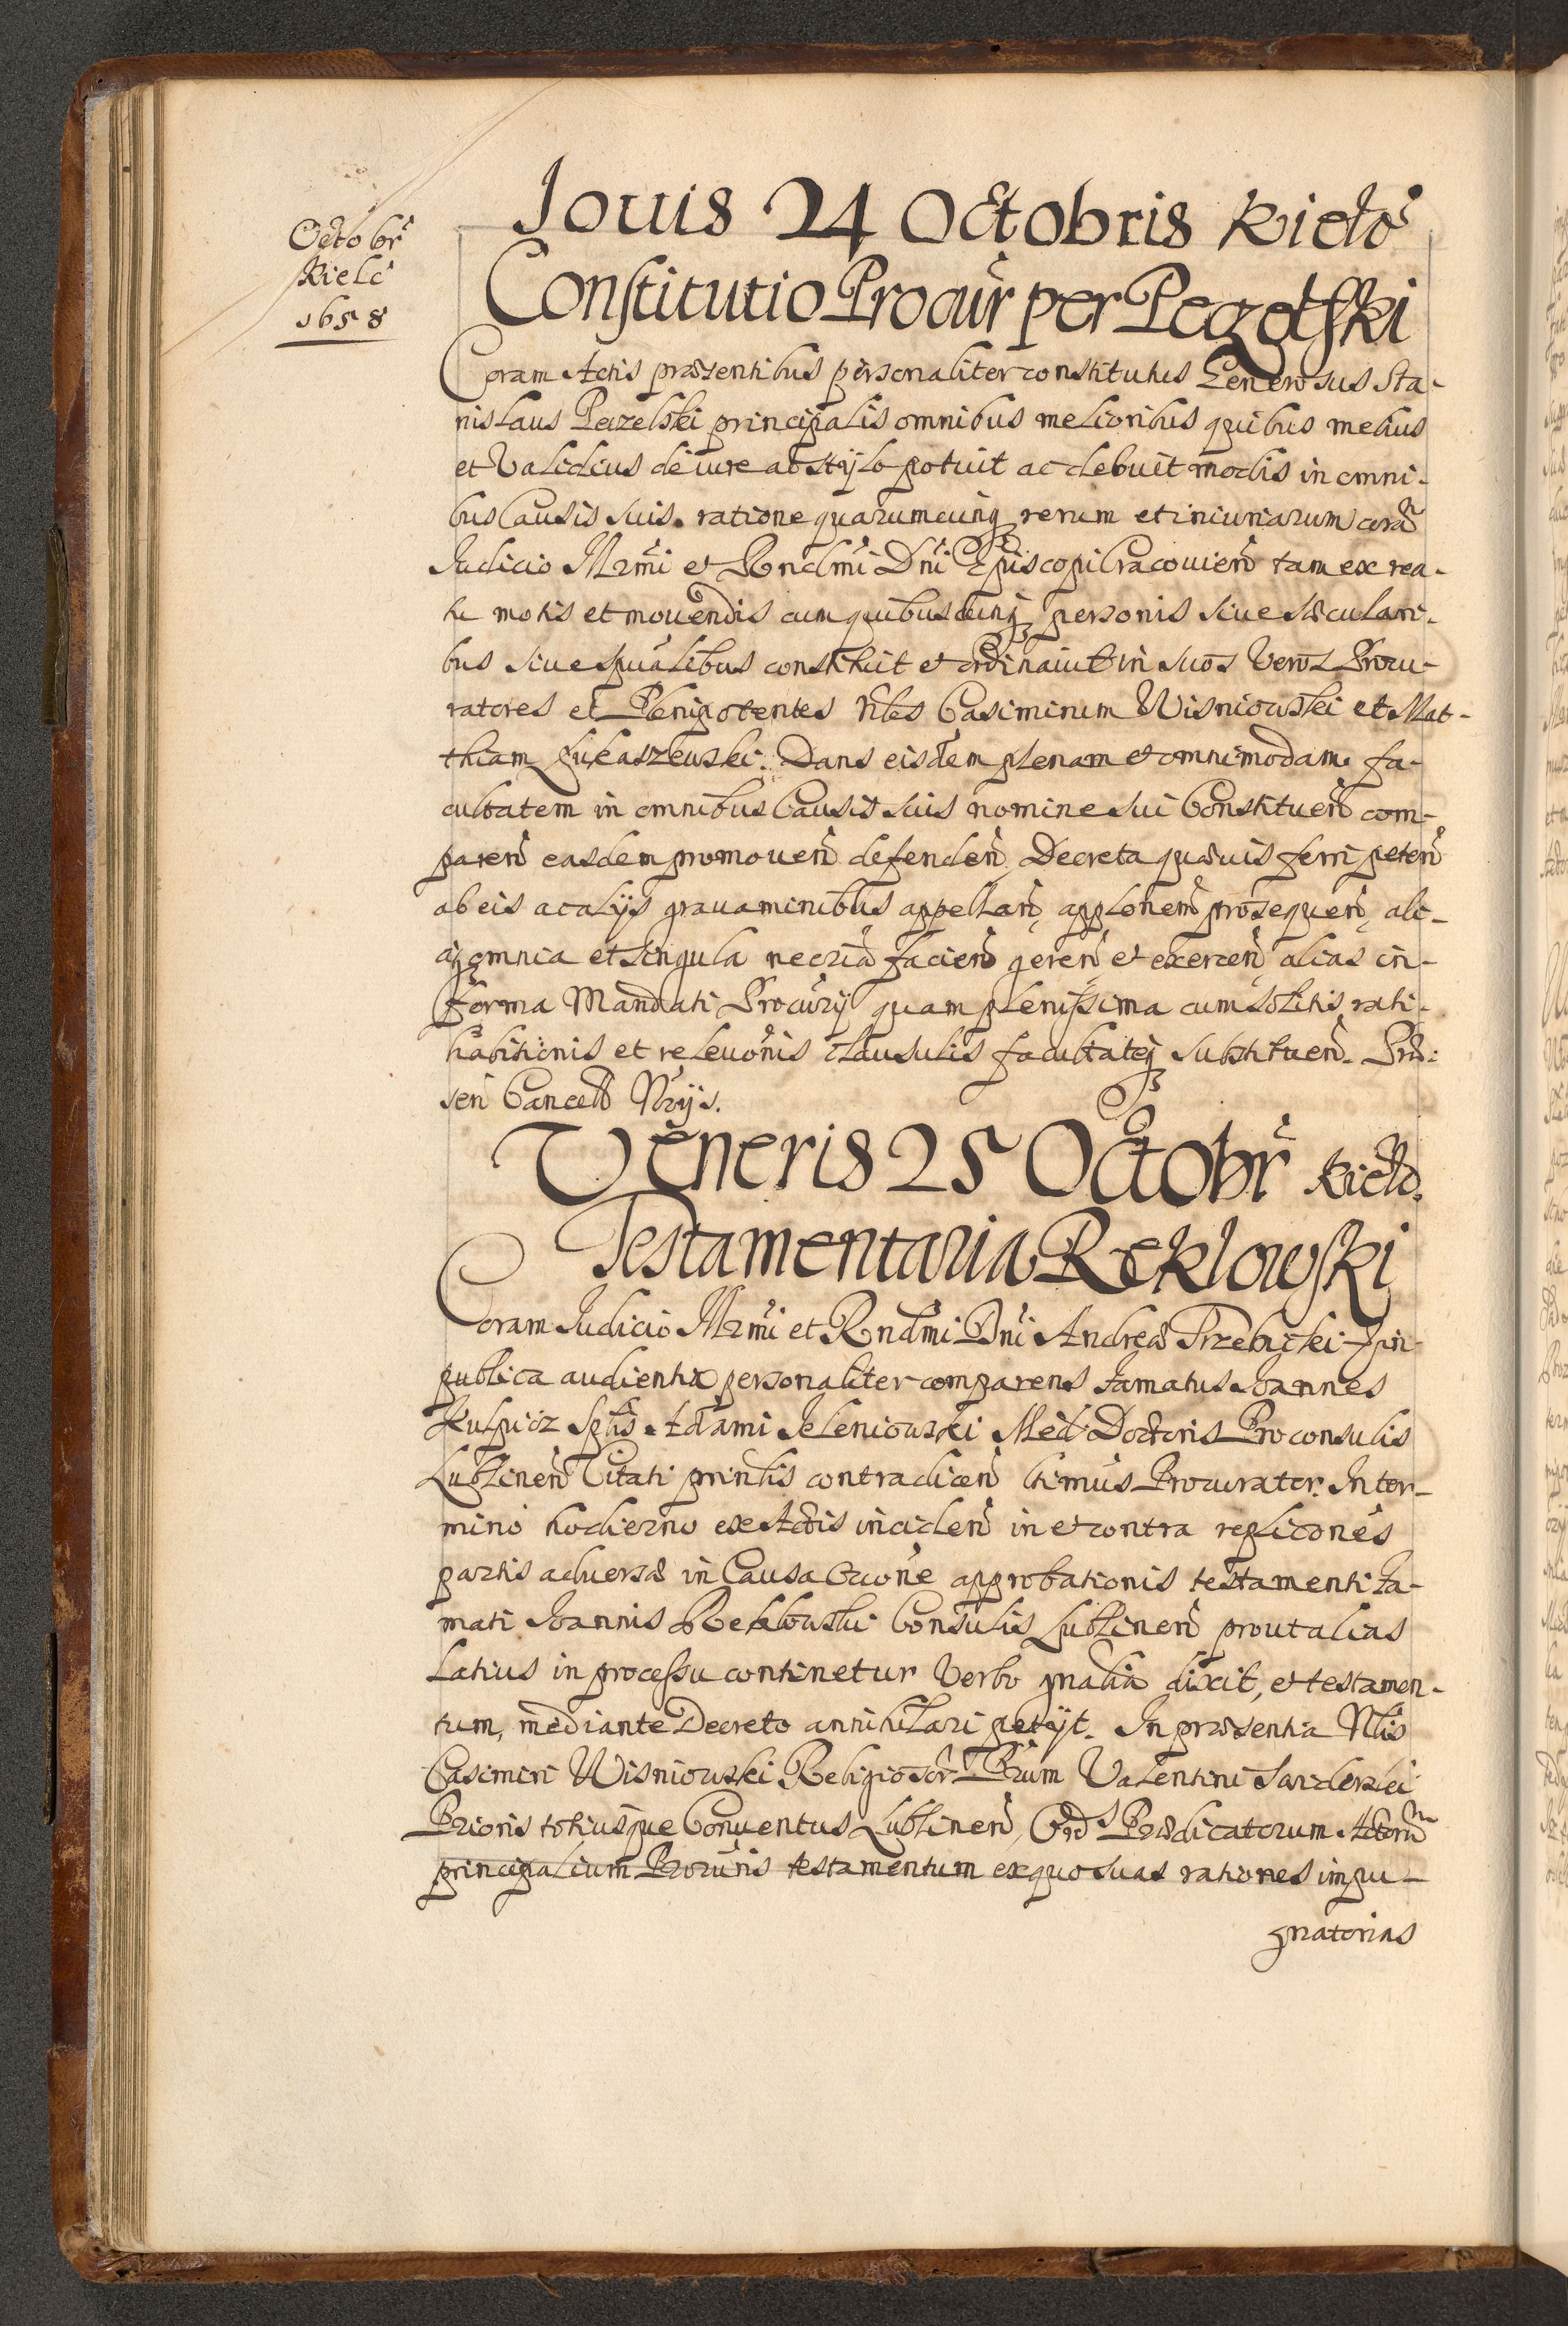 Octobr
Kielc
1658
Jouis 24 Octobris Kielc
Constitutio Procur per Pegolski
Coram Actis præsentibus personaliter constitutus Generosus Sta-
nislaus Pazelski principalis omnibus melioribus quibus melius
et Validius de iure ac stylo potuit ac debuit modis in omni-
bus Causis suis ratione quarumcunq rerum et iniuriarum corã
Judicio Illrmi et Rndmi Dni Episcopi Cracouien tam ex rea-
tu motis et mouendis cum quibuscunq personis siue sæculari-
bus siue spualibus constituit et ordinauit in suos Veros Procu-
ratores et Plenipotentes Nbles Casimirum Wisniowski et Mat-
thiam Łukaszewski. Dans eisdem plenam et omnimodam fa-
cultatem in omnibus Causis suis nomine sui Constituen com-
paren easdem promouen defenden Decreta quæuis ferri peten
ab eis ac alijs grauaminibus appellan applonem prosequen ali-
aq omnia et singula necria facien geren et exercen alias in
forma Mandati Procurij quam plenissima cum solitis rati-
habitionis et releuonis clausulis facultateq substituen. Præ-
sen Cancell Nrijs.
Veneris 25 Octobr Kielc.
Testamentaria Reklowski
Coram Judicio Illrmi et Rndmi Dni Andreæ Trzebicki in
publica audientia personaliter comparens famatus Joannes
Kulpicz Spblis Adami Jeleniowski Med Doctoris Proconsulis
Lublinen Citati prinlis contradicen ltimus Procurator. In ter-
mino hodierno ex Actis inciden in et contra replicones
partis aduersæ in Causa Occone approbationis testamenti fa-
mati Joannis Reklowski Consulis Lublinen prout alias
Latius in processu continetur Verbo gnalia dixit, et testamen-
tum, mediante Decreto annihilari petijt. In præsentia Nblis
Casimiri Wisniowski Religiosor Prum Valentini
Prioris totiusque Conuentus Lublinen, Ord Prædicatorum Actorum
principalium Procuris testamentum ex quo suas rationes impu-
gnatorias